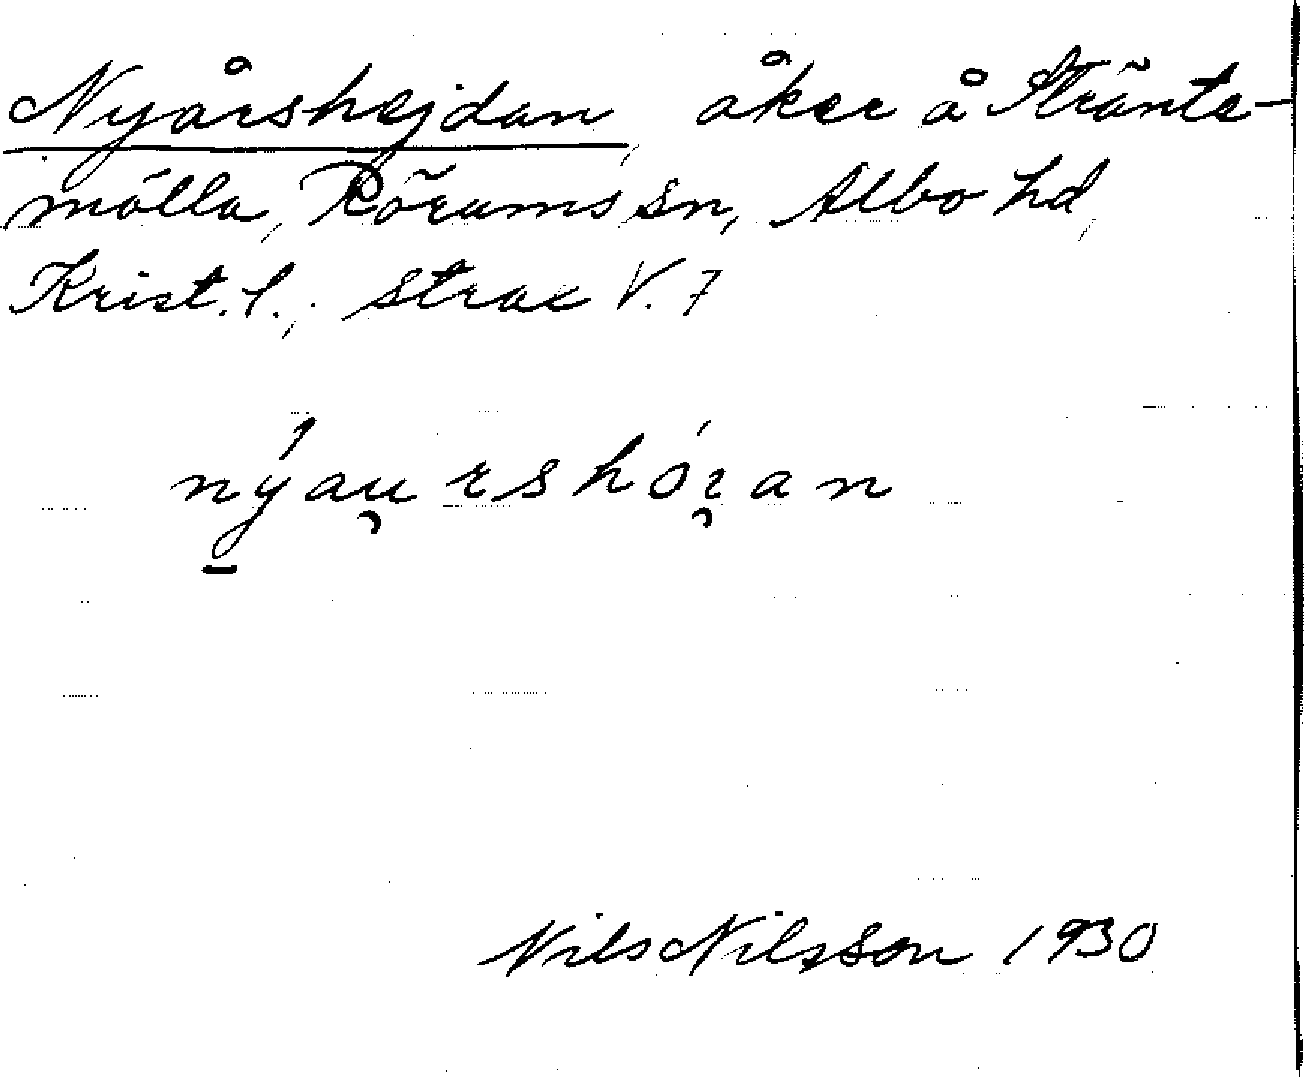 Nyårshejdan, åker å Stränte-
mölla, Rörums sn, Albo hd,
Krist. l.; strax V. 7
nýau̡rshór̡an
Nils Nilsson 1930